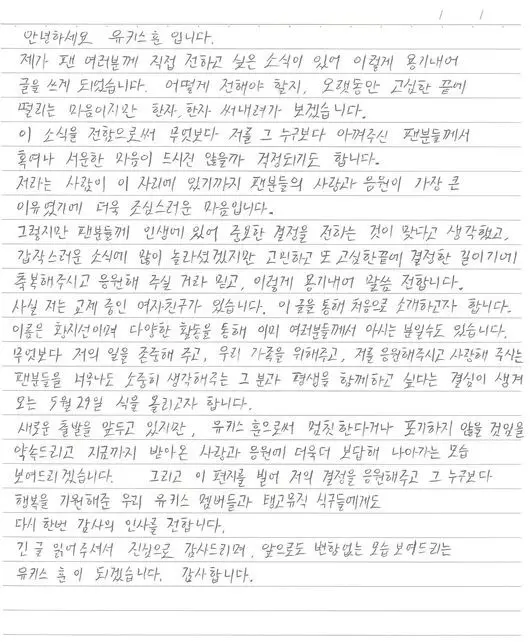 안녕하세요 유키스 훈 입니다.
제가 팬 여러분께 직접 전하고 싶은 소식이 있어 이렇게 용기내어
글을 쓰게 되었습니다. 어떻게 전해야 할지, 오랫동안 고심한 끝에
떨리는 마음이지만 한자, 한자 써내려가 보겠습니다.
이 소식을 전함으로써 무엇보다 저를 그 누구보다 아껴주신 팬분들께서
혹여나 서운한 마음이 드시진 않을까 걱정되기도 합니다.
저라는 사람이 이 자리에 있기까지 팬분들의 사랑과 응원이 가장 큰
이유였기에 더욱 조심스러운 마음입니다.
그렇지만 팬분들께 인생에 있어 중요한 결정을 전하는 것이 맞다고 생각했고,
갑작스러운 소식에 많이 놀라셨겠지만 고민하고 또 고심한끝에 결정한 일이기에
축복해주시고 응원해 주실 거라 믿고, 이렇게 용기내어 말씀 전합니다.
사실 저는 교제 중인 여자친구가 있습니다. 이 글을 통해 처음으로 소개하고자 합니다.
이름은 황지선이며 다양한 활동을 통해 이미 여러분들께서 아시는 분일수도 있습니다.
무엇보다 저의 일을 존중해 주고, 우리 가족을 위해주고, 저를 응원해주시고 사랑해 주시는
팬분들을 너무나도 소중히 생각해주는 그 분과 평생을 함께하고 싶다는 결심이 생겨
오는 5월 29일 식을 올리고자 합니다.
새로운 출발을 앞두고 있지만, 유키스 훈으로써 멈칫한다거나 포기하지 않을 것임을
약속드리고 지금까지 받아온 사랑과 응원에 더욱더 보답해 나아가는 모습
보여드리겠습니다. 그리고 이 편지를 빌어 저의 결정을 응원해주고 그 누구보다
행복을 기원해준 우리 유키스 멤버들과 탱고뮤직 식구들에게도
다시 한번 감사의 인사를 전합니다.
긴 글 읽어주셔서 진심으로 감사드리며, 앞으로도 변함없는 모습 보여드리는
유키스 훈 이 되겠습니다. 감사합니다.